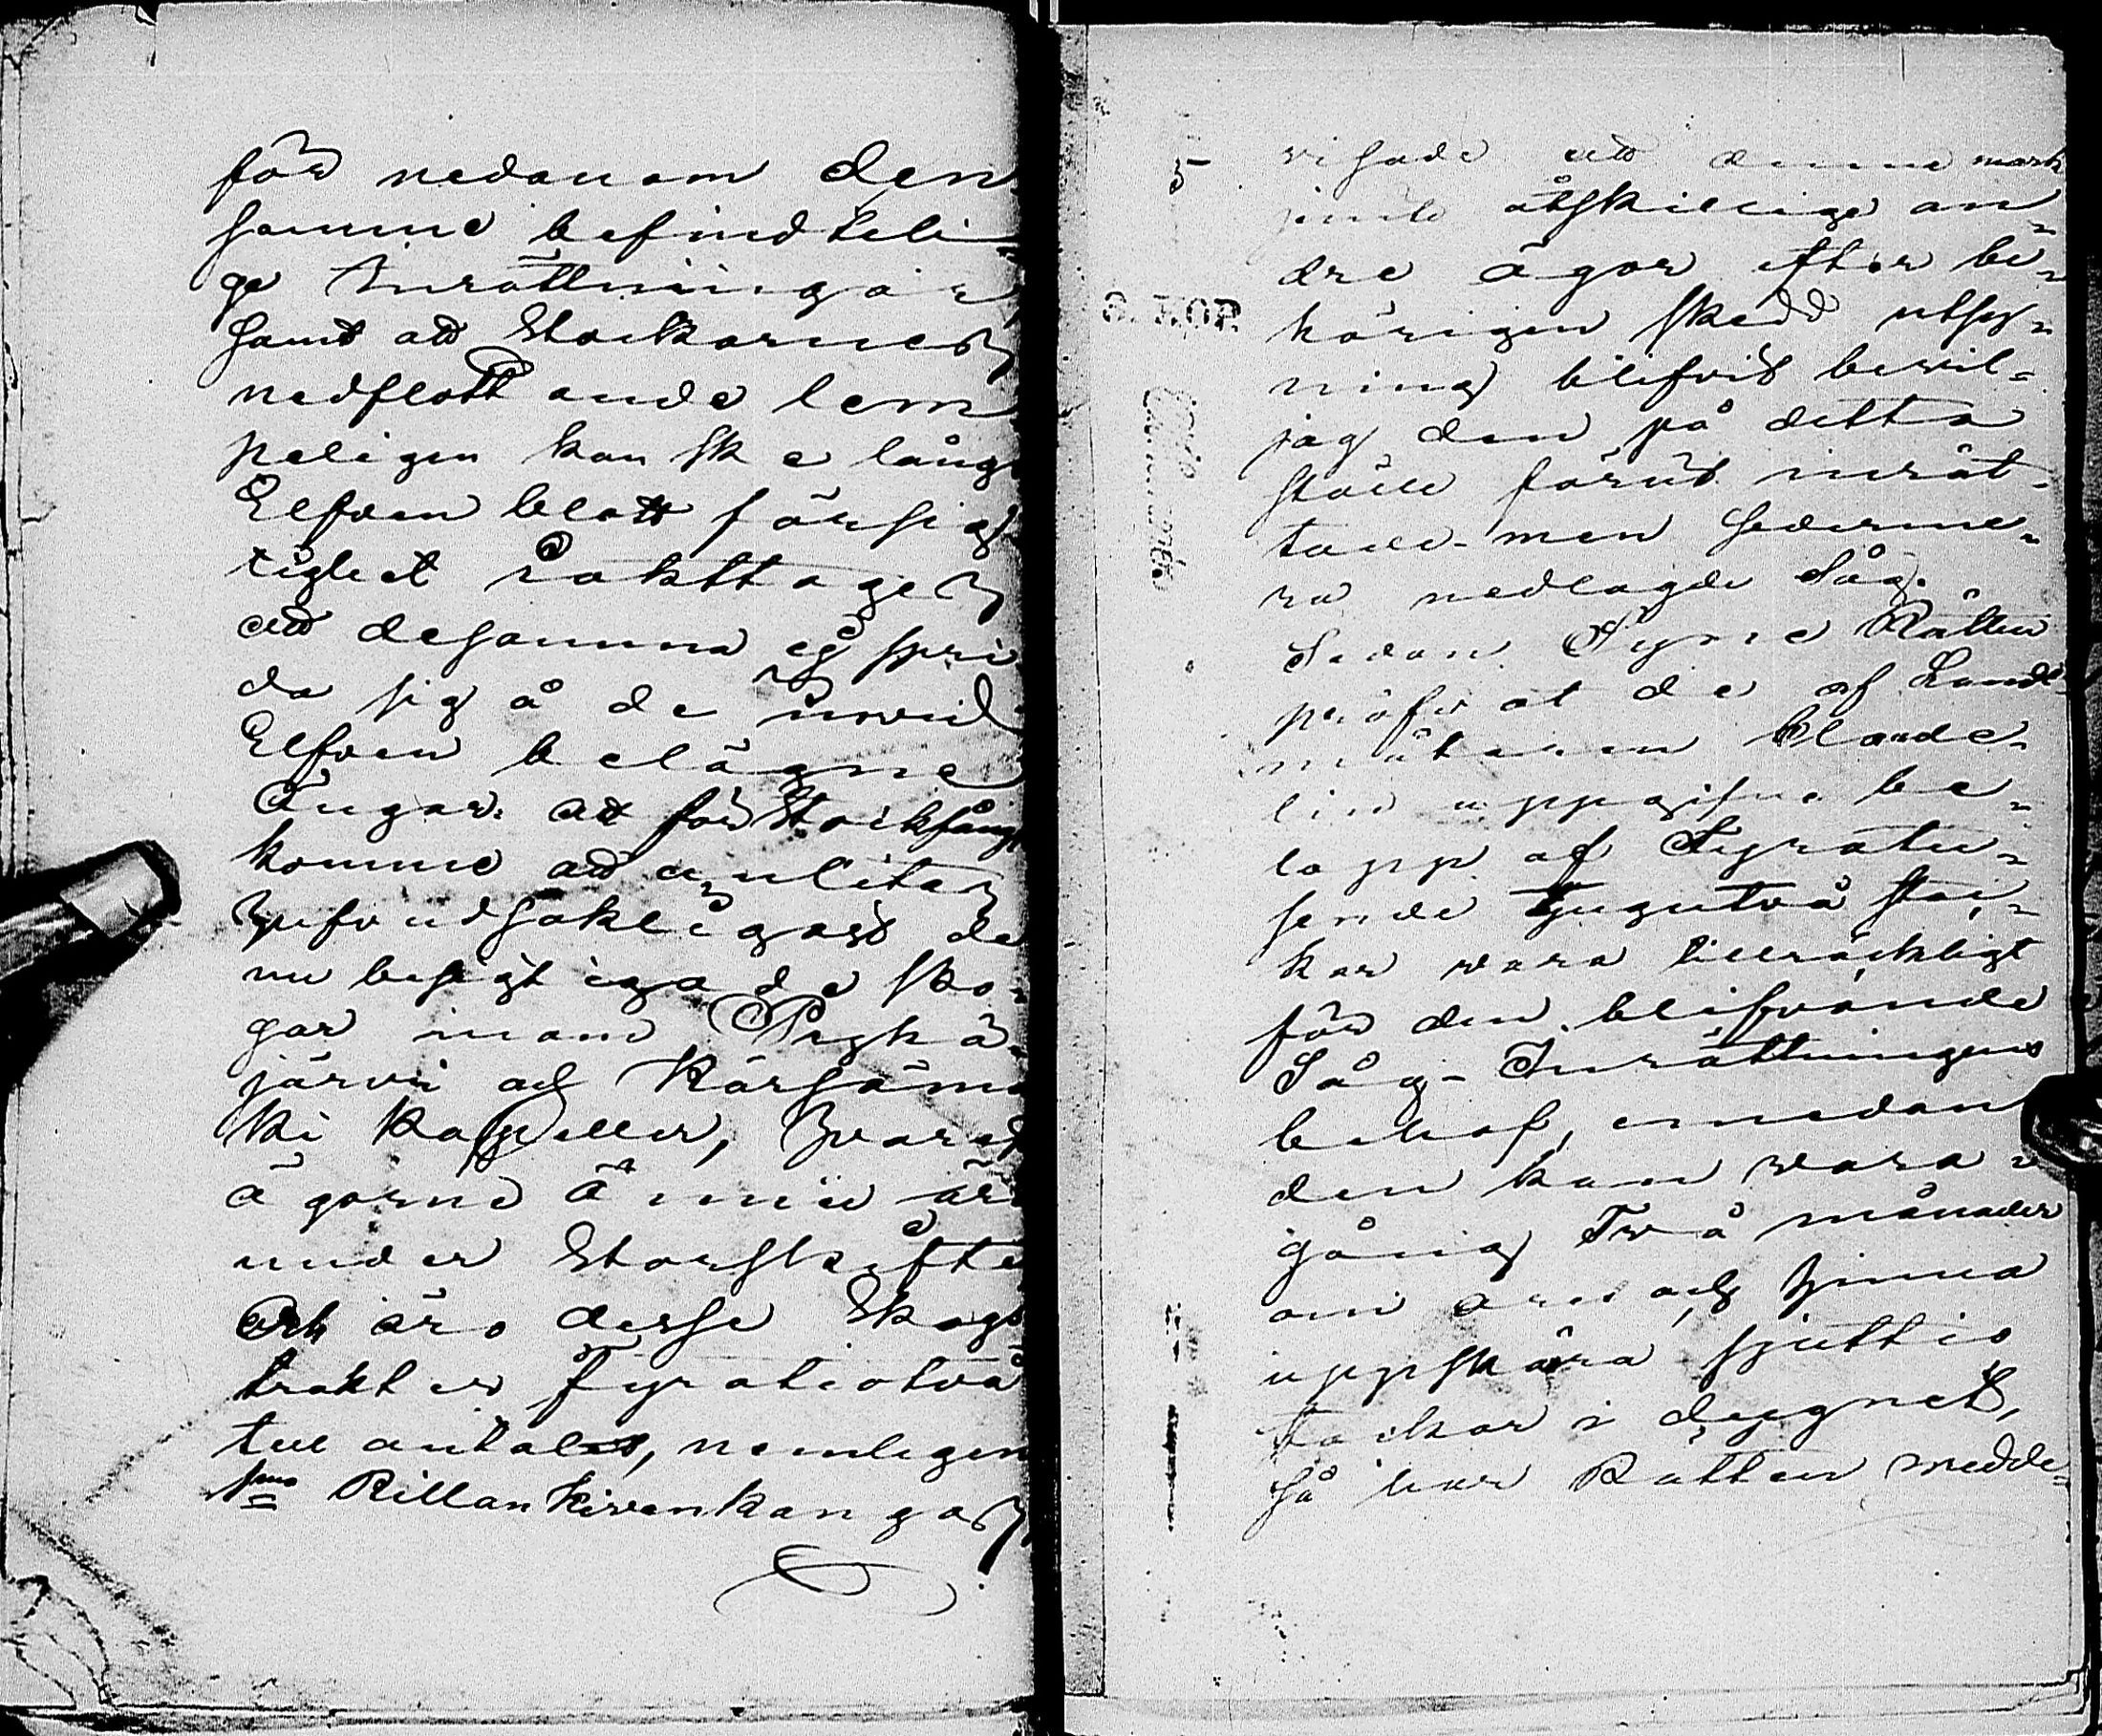 för nedanom den
samme befindteli-
ge Inrättningar
samt att Stockarnes
nedflottande lem
peligen kan ske långs
Elfven blott försig
tighet iakttages
att desamma ej spri
da sig å de invid
Elfven belägne
Ängar. Att för Stockfångst
komme att anlitas
hufvudsakligast de
nu besigtigade sko-
gar inom Pyhä-
järvi och Kärsämä
ki Kapeller, hvarest
ägorne ännu är
under Storskifte
Och äro desse Skogs
trakter Fyratiotvå
till antalet, nemligen
1mo Rillankivenkangas
5
visade att denne mark
jemte åtskillige an-
dre ägor efter be-
hörigen skedd utsy-
ning blifvit bevil-
jad den på detta
ställe förut inrät-
tade men sederme-
ra nedlagde Såg.
Sedan Syne Rätten
pröfvat de af Landt
mätaren Elande-
lin uppgifne be-
lopp af Fyratu-
sende tjugutvå stoc-
kar vara tillräckligt
för den blifvande
Såg-Inrättningens
behof, emedan
den kan vara i
gång Två månader
om året och hinna
uppskära sjuttio
stockar i dygnet,
så har Rätten medde-